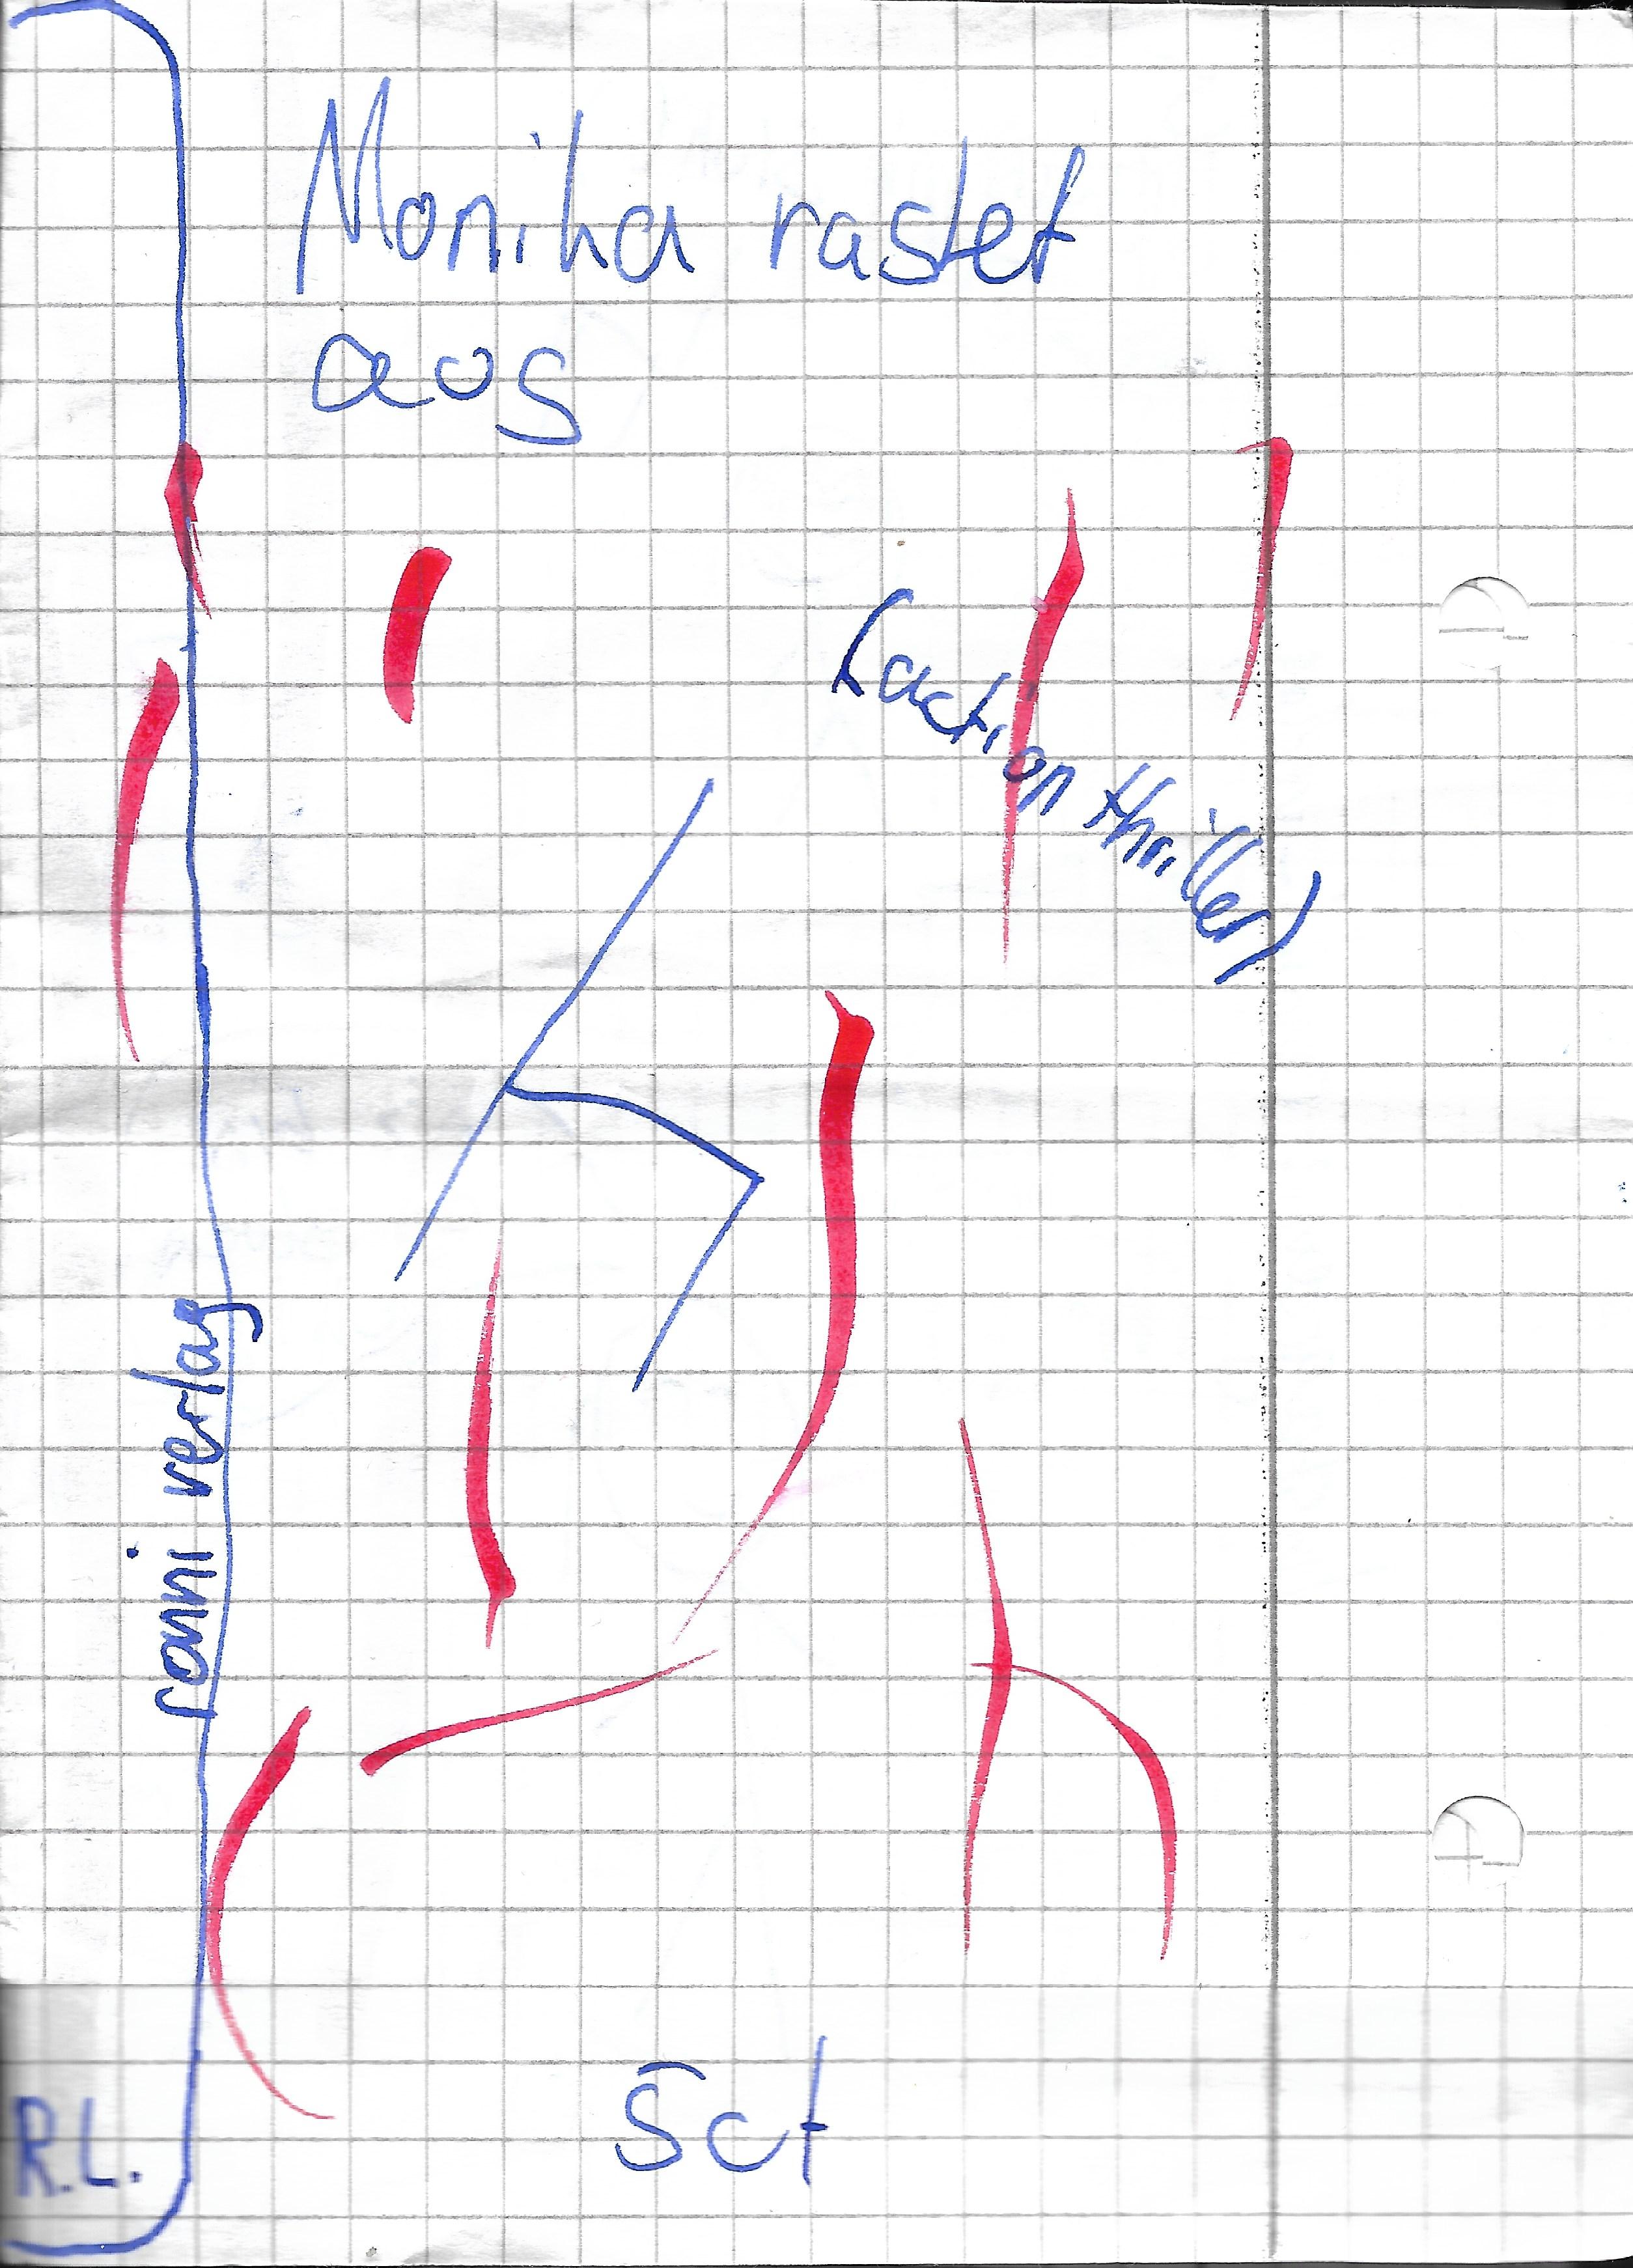 Monika rastet
aus
(action thriller)
ronni verlag
R.L.
Sct